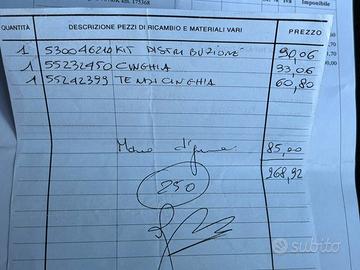 175368
Imponibile
QUANTITÀ DESCRIZIONE PEZZI DI RICAMBIO E MATERIALI VARI PREZZO
1 530046210 KIT DISTRIBUZIONE 90,06
1 55232450 CINGHIA 33,06
1 55242399 TENDICINGHIA 60,80
Mano d'opera 85,00
268,92
250
subito